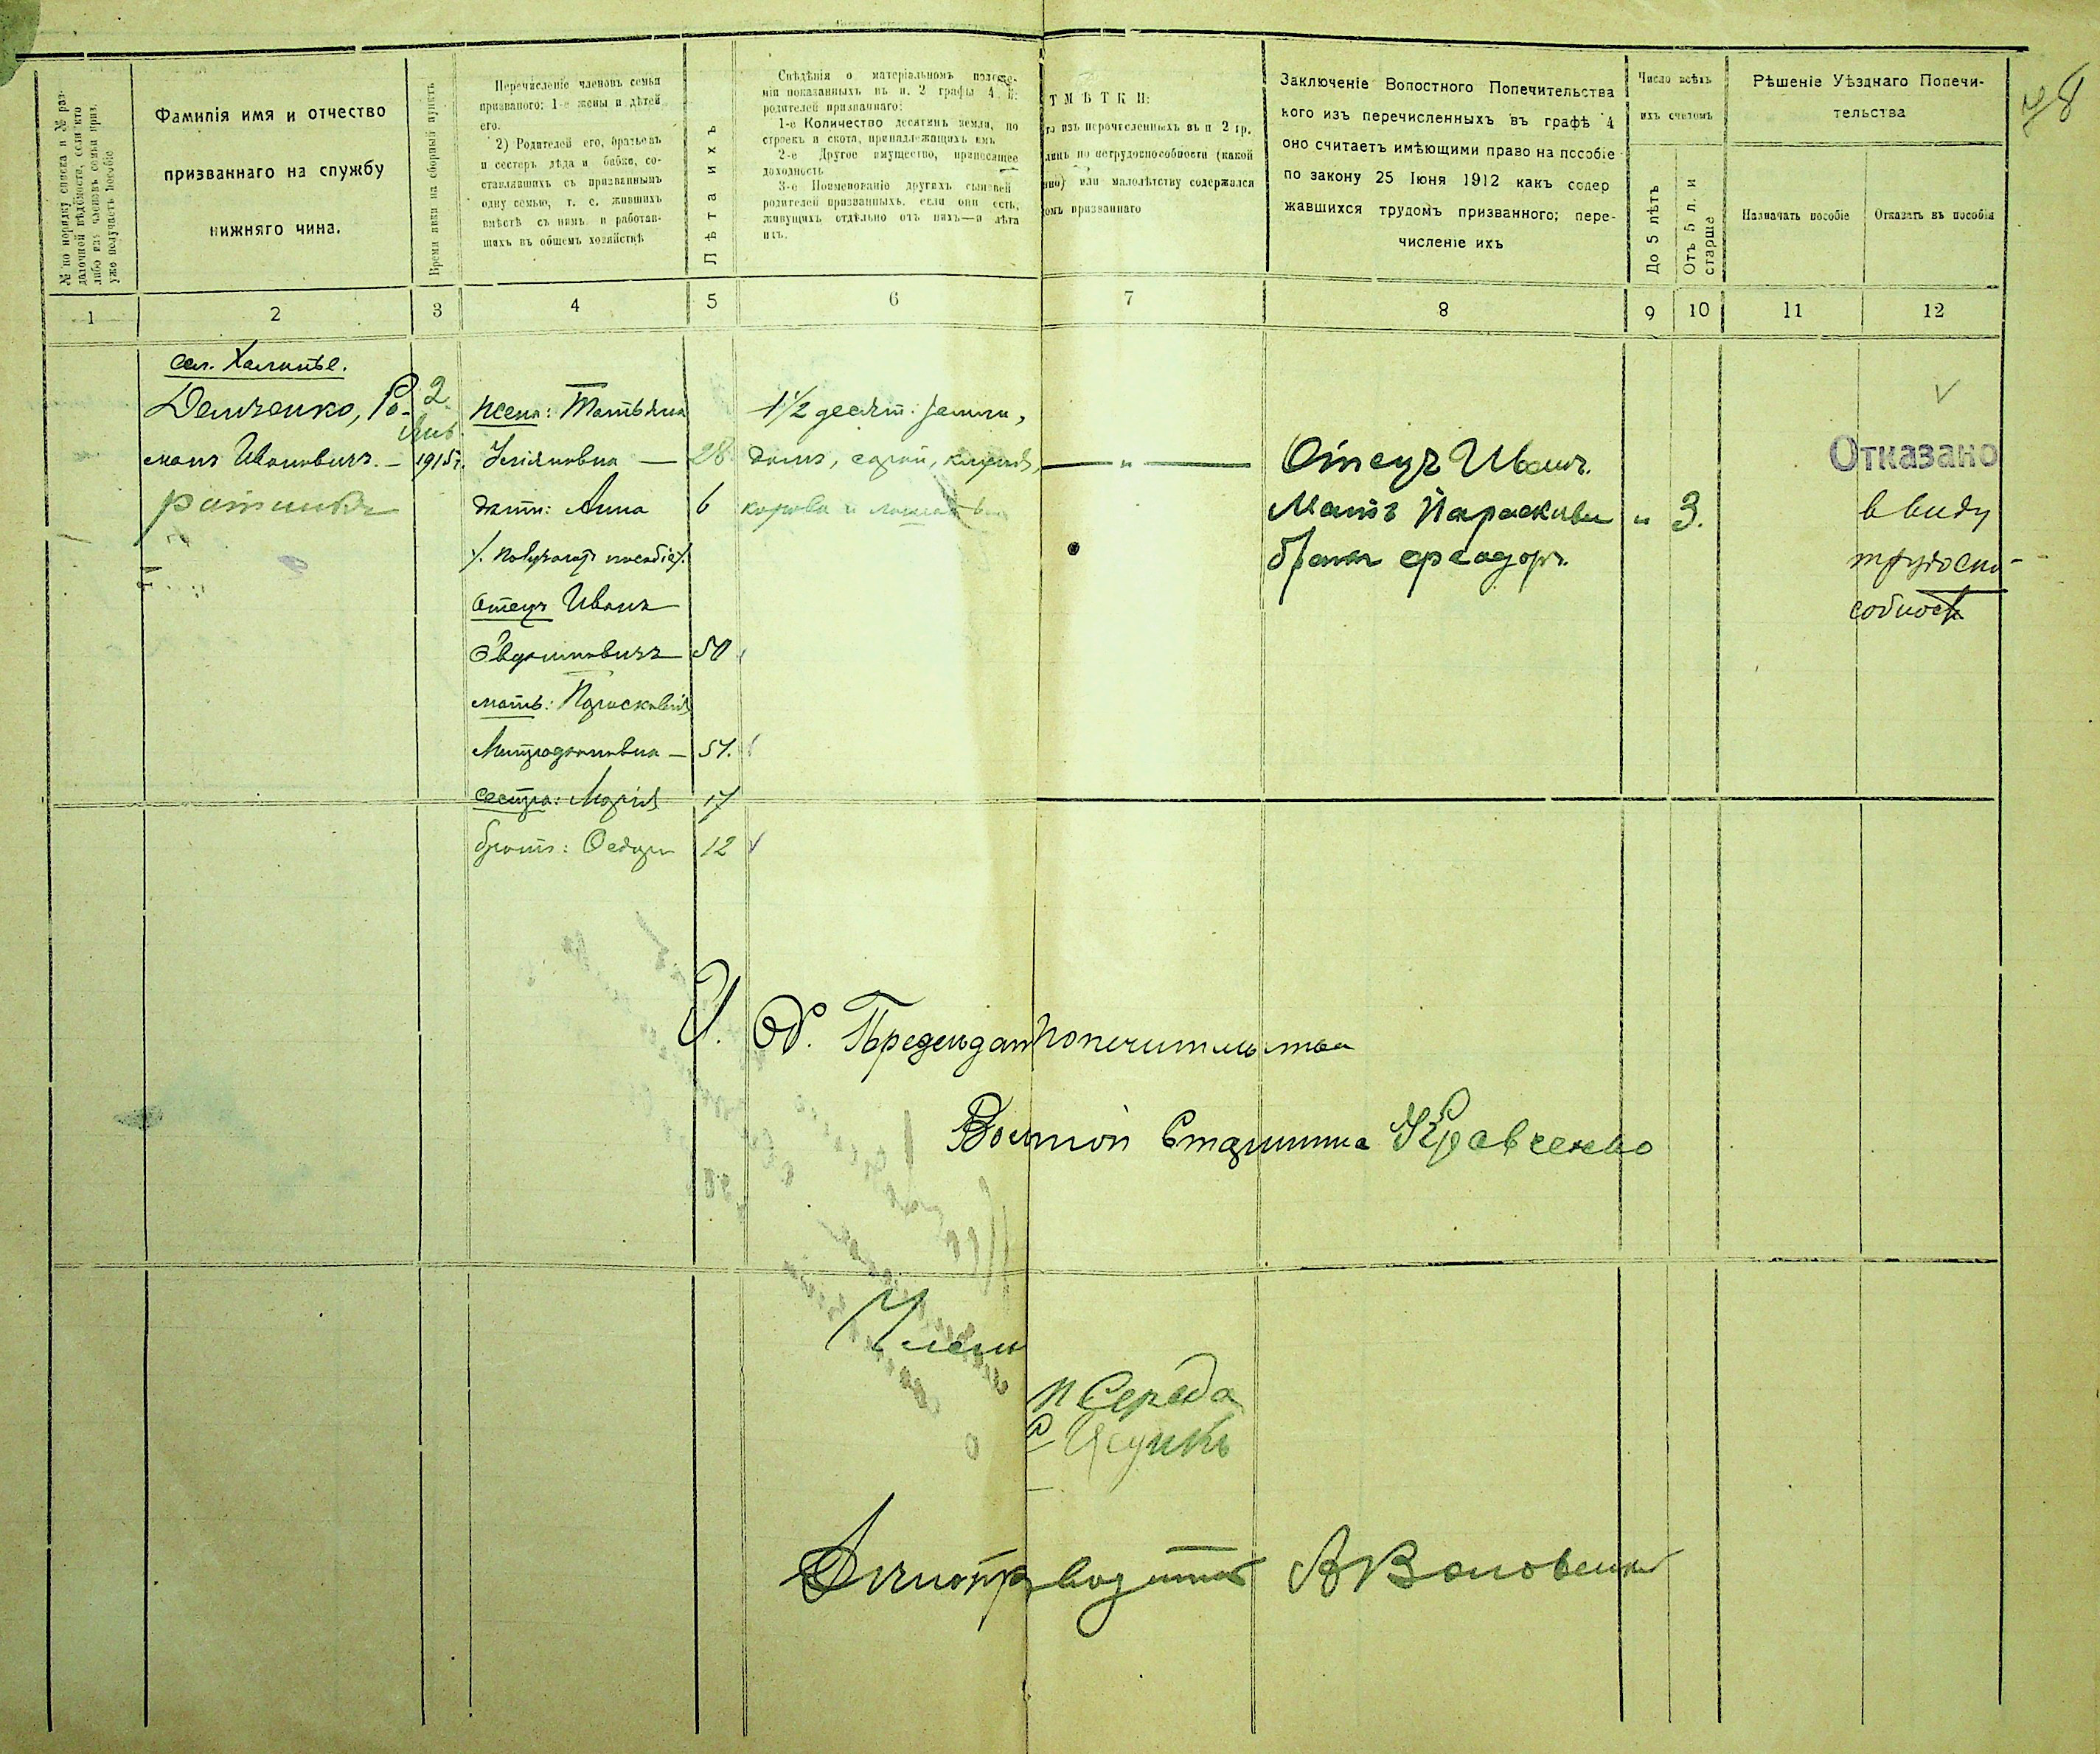 № по порядку списка и № раз-
даточной вѣдомости, если кто
либо изъ членовъ семьи приз.
уже получаетъ пособіе
Фамилія имя и отчество
призваннаго на службу
нижняго чина.
Время явки на сборный пунктъ
Перечисленіе членовъ семьи
призваного: 1-е жены и дѣтей
его.
2) Родителей его, братьевъ
и сестеръ дѣда и бабки, со-
ставлявшихъ съ призваннымъ
одну семью, т. е. жившихъ
вмѣстѣ съ нимъ и работав-
шихъ въ общемъ хозяйствѣ
Лѣта ихъ
Свѣдѣнія о матеріальномъ положе-
ніи показанныхъ въ п. 2 графы 4 и
родителей призваннаго:
1-е Количество десятинъ земли, по
строекъ и скота, принадлежащихъ имъ
2-е Другое имущество, приносящее
доходность
3-е Поименованіе другихъ сыновей
родителей призванныхъ, если они есть,
живущихъ отдѣльно отъ нихъ—и лѣта
ихъ.
ТМѢТКИ:
то изъ перочисленныхъ въ п 2 гр.
лишь по нетрудоспособности (какой
нно) или малолѣтству содержался
омъ призваннаго
Заключеніе Волостного Попечительства
кого изъ перечисленныхъ въ графѣ 4
оно считаетъ имѣющими право на пособіе
по закону 25 Іюня 1912 какъ содер
жавшихся трудомъ призванного; пере-
численіе ихъ
Число всѣхъ
ихъ счетомъ
До 5 лѣтъ
Отъ 5 л. и
старше
Рѣшеніе Уѣзднаго Попечи-
тельства
Назначать пособіе
Отказать въ пособіи
1 2 3 4 5 6 7 8 9 10 11 12
Демченко, Ро-
манъ Ивановичъ. —
ратникъ
2
1915г.
жена: Татьяна
28
дати: Анна 6
/. получают пособіе/.
отецъ Иванъ
Евдокимовичъ 50
мать: Парасковія
Митродановна — 51.
сестра: Марія 17
братъ: Федоръ 12
1½ десят. земли,
домъ, сарай,
корова и
— " —
Отецъ Иванъ.
Мать Параскива
братъ Феодоръ.
" 3.
Отказано
в виду
трудоспо-
собности
И. Об. Предсѣдат Попечительства
Волостной Старшина Кравченко
Члены
П Середа
Дѣлопроизводитель